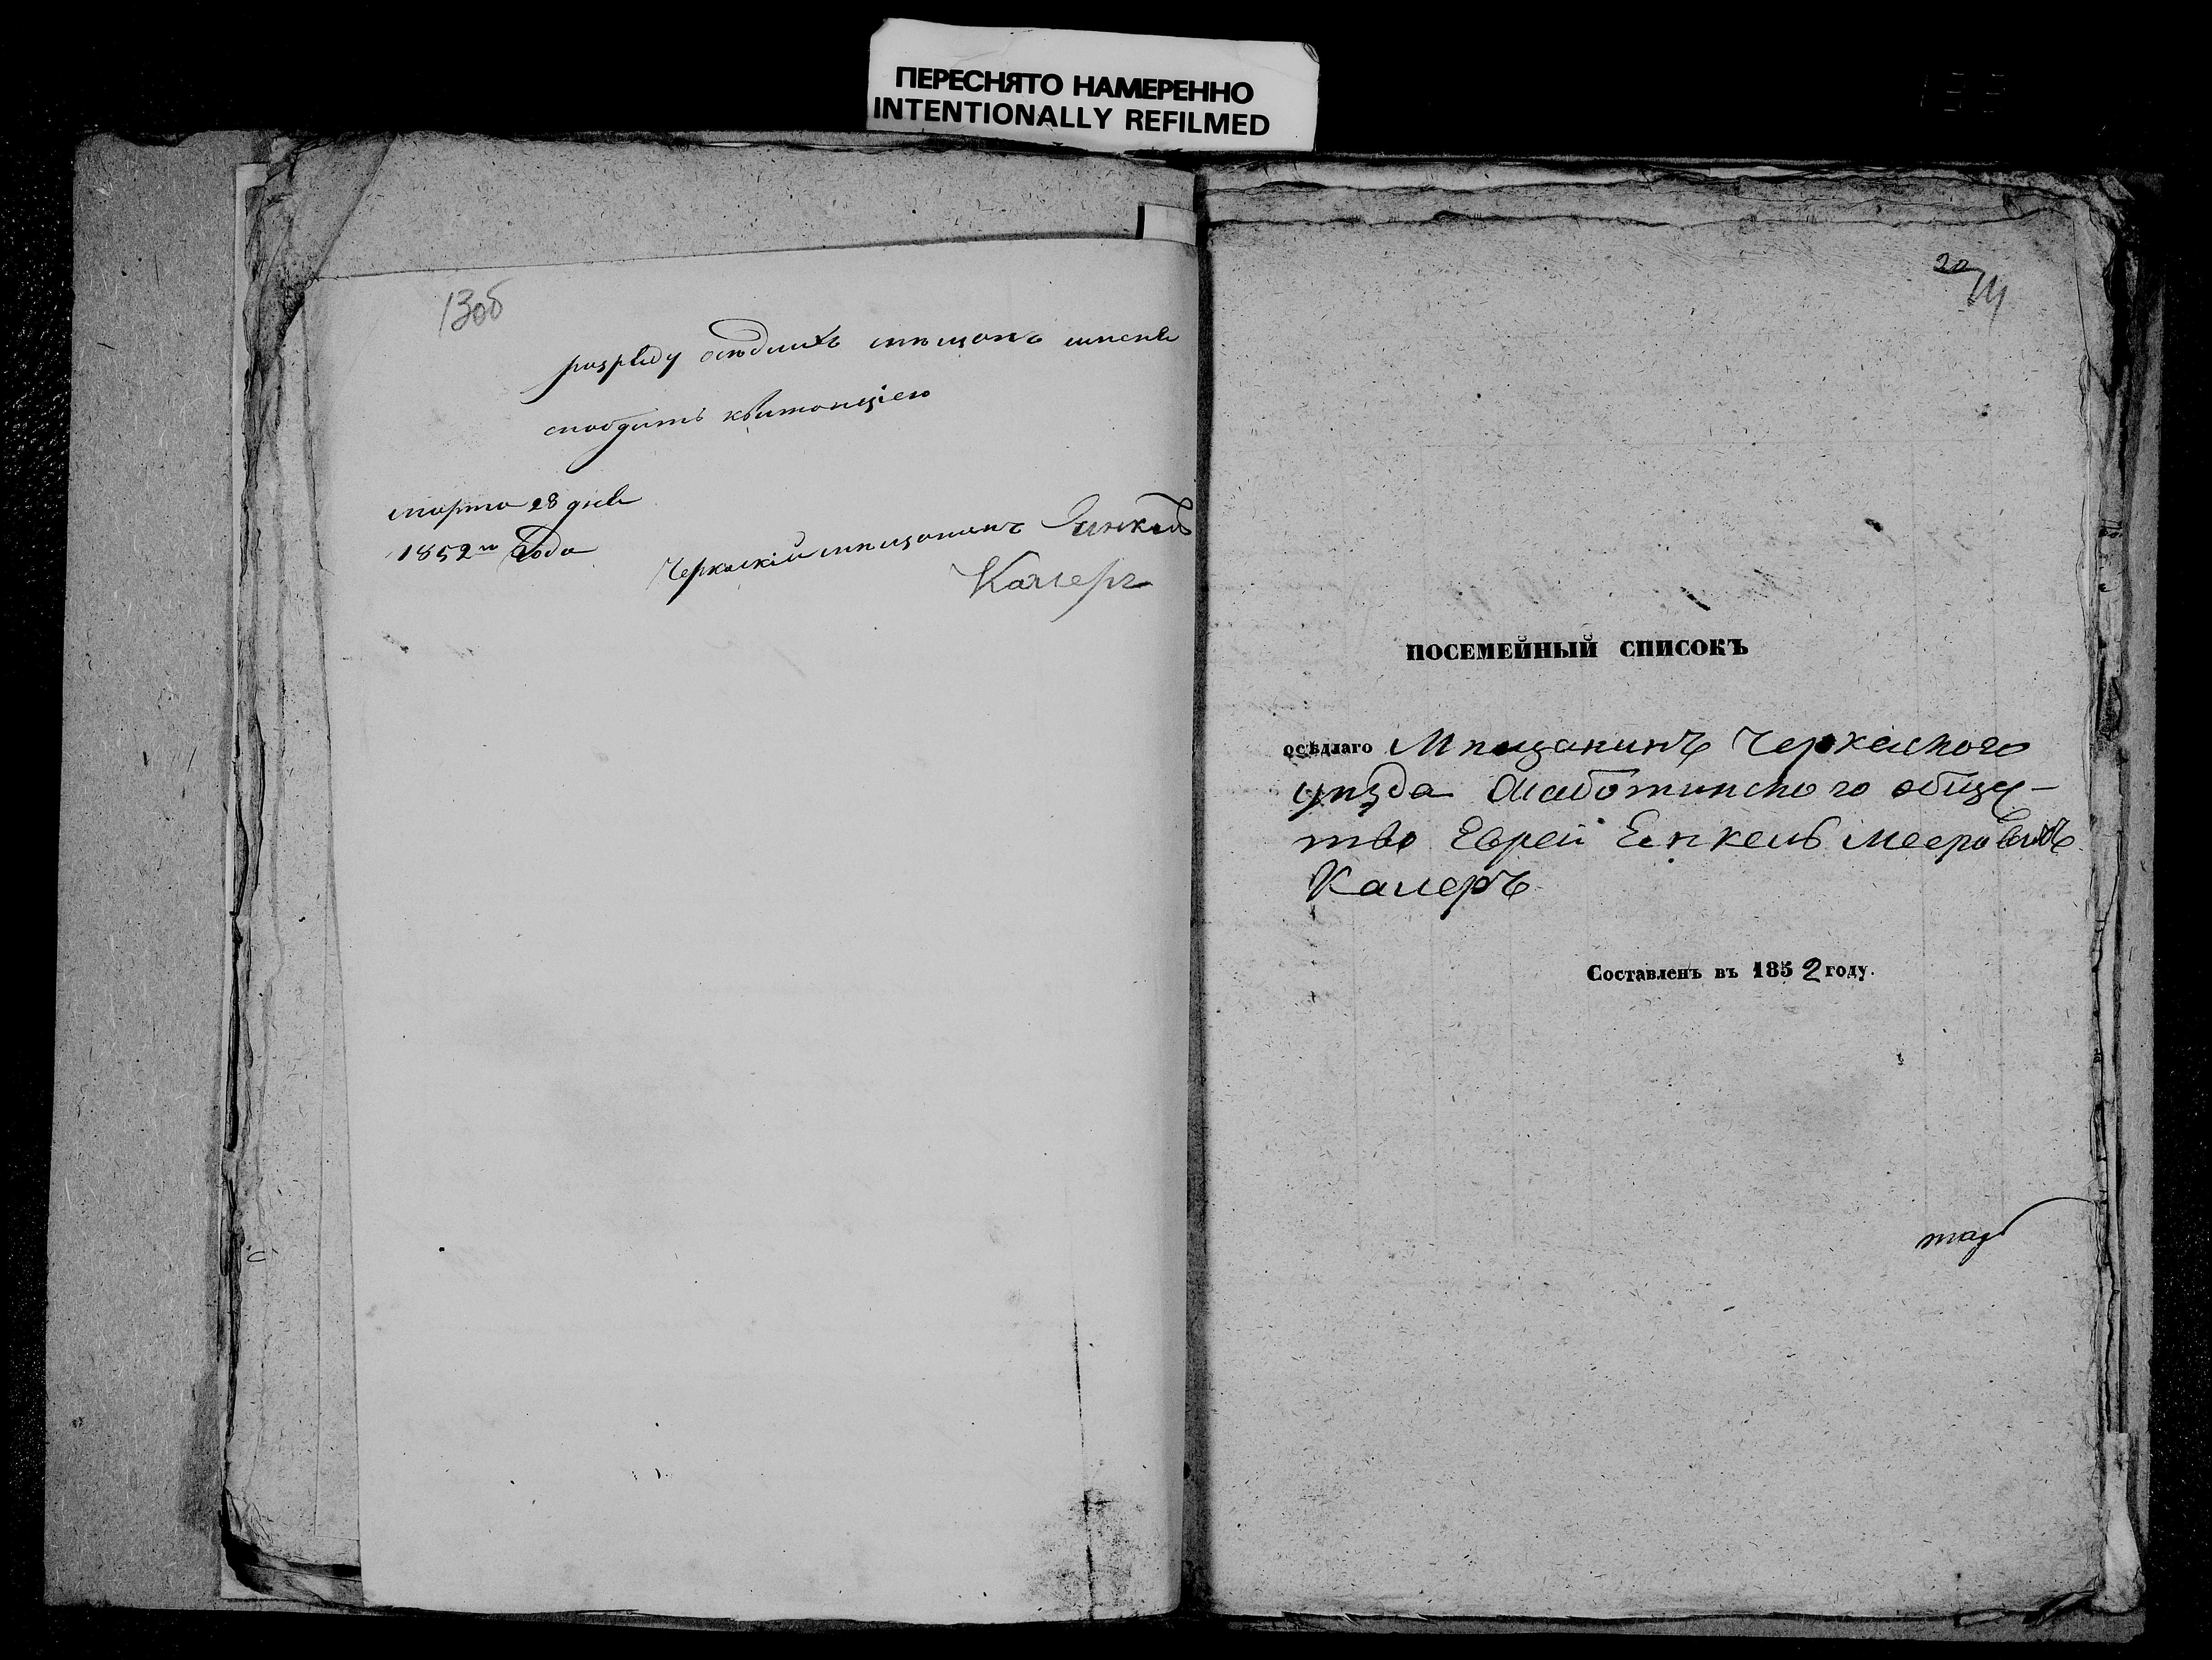 ПЕРЕСНЯТО НАМЕРЕННО
INTENTIONALLY REFILMED
13об
розряду осѣдлихъ мѣщанъ
снабдить квитанціею
марта 28 дня
1852го Года
Черкаскій мѣщанинъ Янкель
Калеръ
20
14
ПОСЕМЕЙНЫЙ СПИСОКЪ
осѣдлаго Мѣщанинъ Черкаского
уѣзда Смаботинского обще-
тво Еврей Енкель Мееровичъ
Калеръ
Составленъ въ 1852 году.